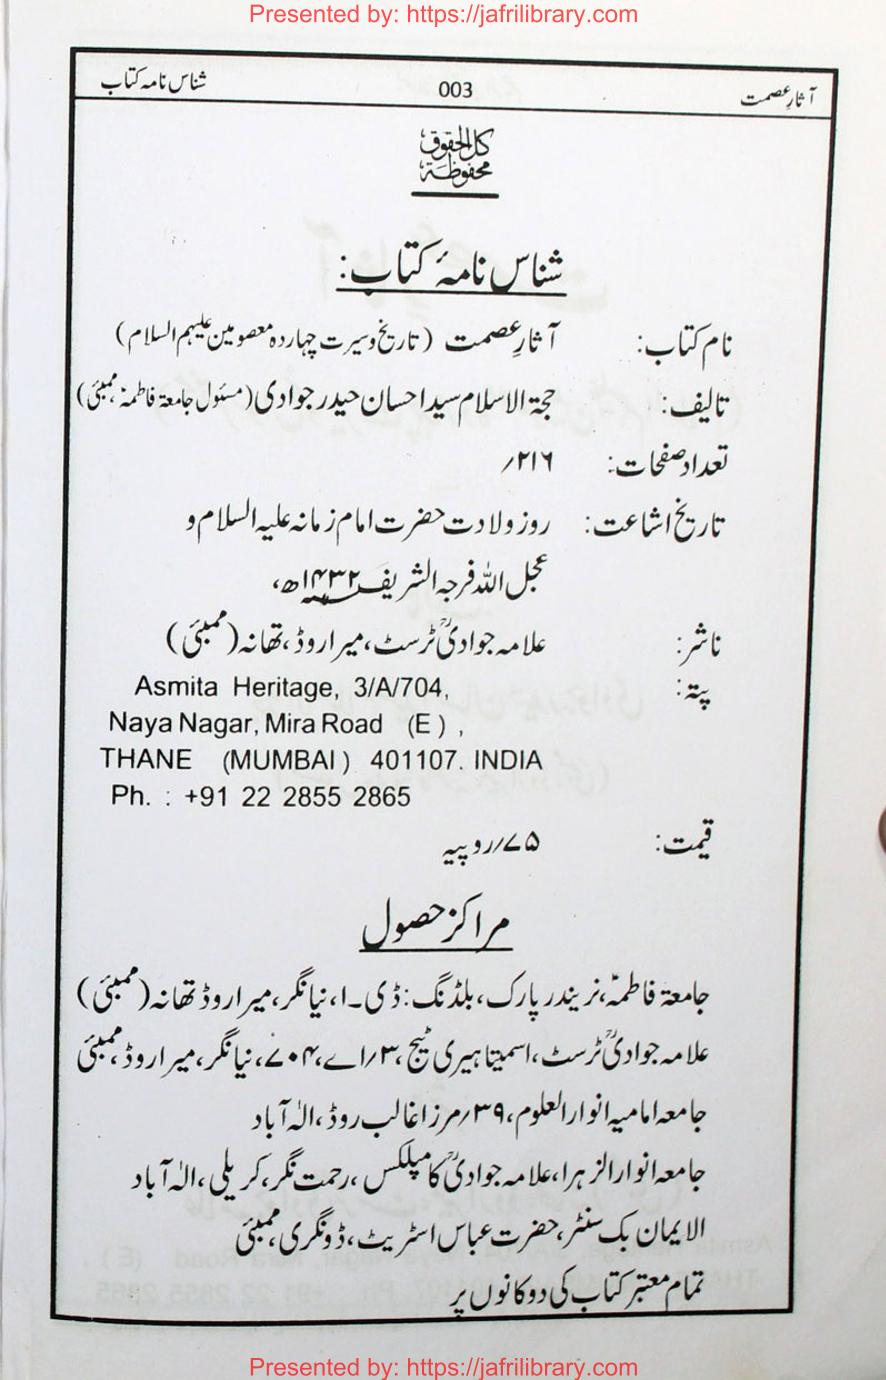 Presented by: https://jafrilibrary.com
آثارِ عصمت 003 شناس نامہ کتاب
کل الحقوق محفوظة
شناس نامۂ کتاب:
نام کتاب: آثارِ عصمت (تاریخ و سیرت چہاردہ معصومین علیہم السلام)
تالیف: حجۃ الاسلام سید احسان حیدر جوادی (مسئول جامعۃ فاطمہؑ، ممبئی)
تعداد صفحات: ۲۱۶/
تاریخ اشاعت: روز ولادت حضرت امام زمانہ علیہ السلام و
عجل اللہ فرجہ الشریف ۱۴۳۲ھ،
ناشر: علامہ جوادیؒ ٹرسٹ، میرا روڈ، تھانہ (ممبئی)
پتہ: Asmita Heritage, 3/A/704,
Naya Nagar, Mira Road (E) ,
THANE (MUMBAI) 401107. INDIA
Ph. : +91 22 2855 2865
قیمت: ۷۵/روپیہ
مراکز حصول
جامعۃ فاطمہؑ، نریندر پارک، بلڈنگ: ڈی۔۱، نیا نگر، میرا روڈ تھانہ (ممبئی)
علامہ جوادیؒ ٹرسٹ، اسمیتا ہیری ٹیج، ۳/اے، ۷۰۴، نیا نگر، میرا روڈ، ممبئی
جامعہ امامیہ انوار العلوم، ۳۹/مرزا غالب روڈ، الٰہ آباد
جامعہ انوار الزہرا، علامہ جوادیؒ کامپلکس، رحمت نگر، کریلی، الٰہ آباد
الایمان بک سنٹر، حضرت عباس اسٹریٹ، ڈونگری، ممبئی
تمام معتبر کتاب کی دوکانوں پر
Presented by: https://jafrilibrary.com